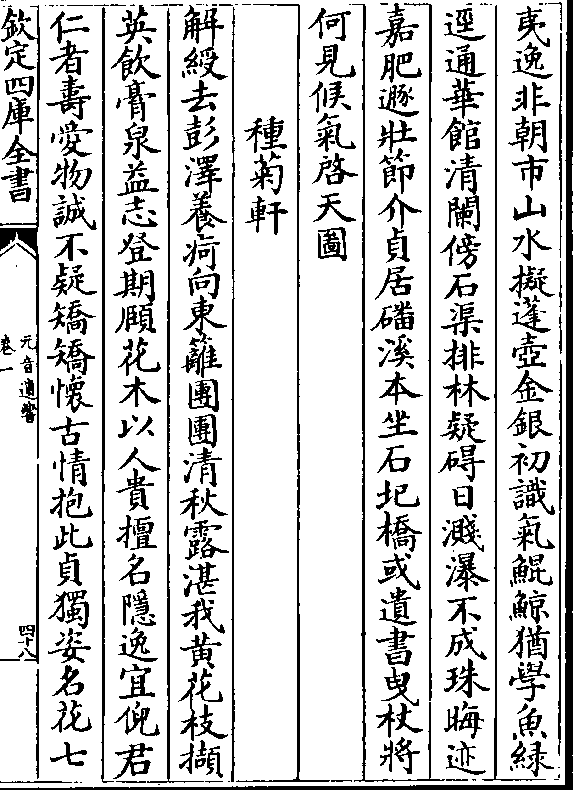 夷逸非朝市山水擬蓬壺金銀初識氣鯤鯨猶學魚緑
逕通華館清闌傍石渠排林疑碍日濺瀑不成珠晦迹
嘉肥遯壯節介貞居磻溪本坐石圯橋或遺書曳杖將
何見候氣啓天圖
種菊軒
解綬去彭澤養疴向東籬團團清秋露湛我黄花枝擷
英飲膏泉益志登期頤花木以人貴擅名隱逸宜俛君
仁者壽愛物誠不疑矯矯懷古情抱此貞獨姿名花七
欽定四庫全書
元音遺響
卷一
四十八